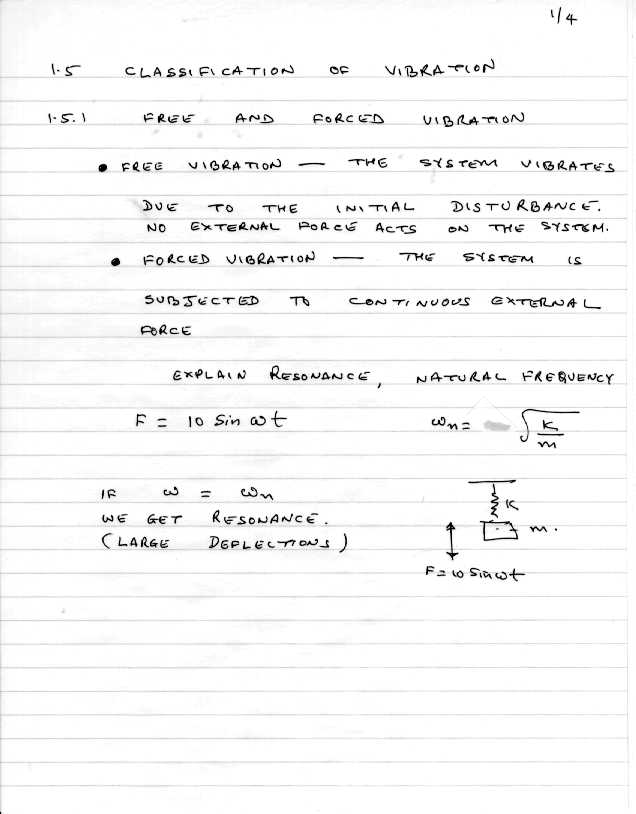 1/4
1.5 CLASSIFICATION OF VIBRATION
1.5.1 FREE AND FORCED VIBRATION
• FREE VIBRATION — THE SYSTEM VIBRATES
DUE TO THE INITIAL DISTURBANCE.
NO EXTERNAL FORCE ACTS ON THE SYSTEM.
• FORCED VIBRATION — THE SYSTEM IS
SUBJECTED TO CONTINUOUS EXTERNAL
FORCE
EXPLAIN RESONANCE, NATURAL FREQUENCY
F = 10 Sin ωt ωn = √(K/m)
IF ω = ωn
WE GET RESONANCE.
(LARGE DEFLECTIONS)
K
m.
F = 10 Sin ωt